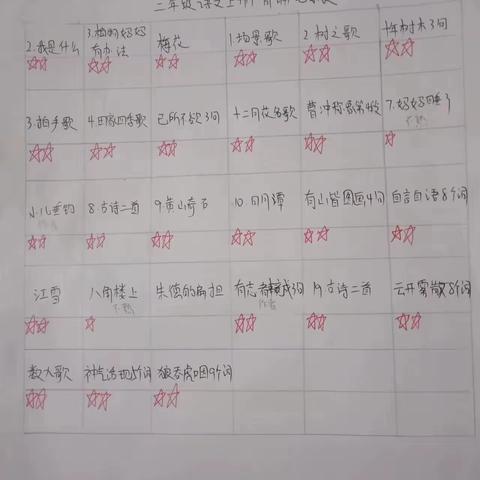 2.我是什么
3.植物妈妈
有办法
梅花
1.场景歌
2.树之歌
十年树木3句
3.拍手歌
4.田家四季歌
己所不欲3句
十二月花名歌
曹冲称象第4段
7.妈妈睡了
不熟
小儿垂钓
8.古诗二首
9.黄山奇石
10.日月潭
有山皆图画4句
自言自语8个词
江雪
八角楼上
不熟
朱德的扁担
有志者事竟成3句
19古诗二首
云开雾散8个词
数九歌
神气活现5个词
狼吞虎咽9个词